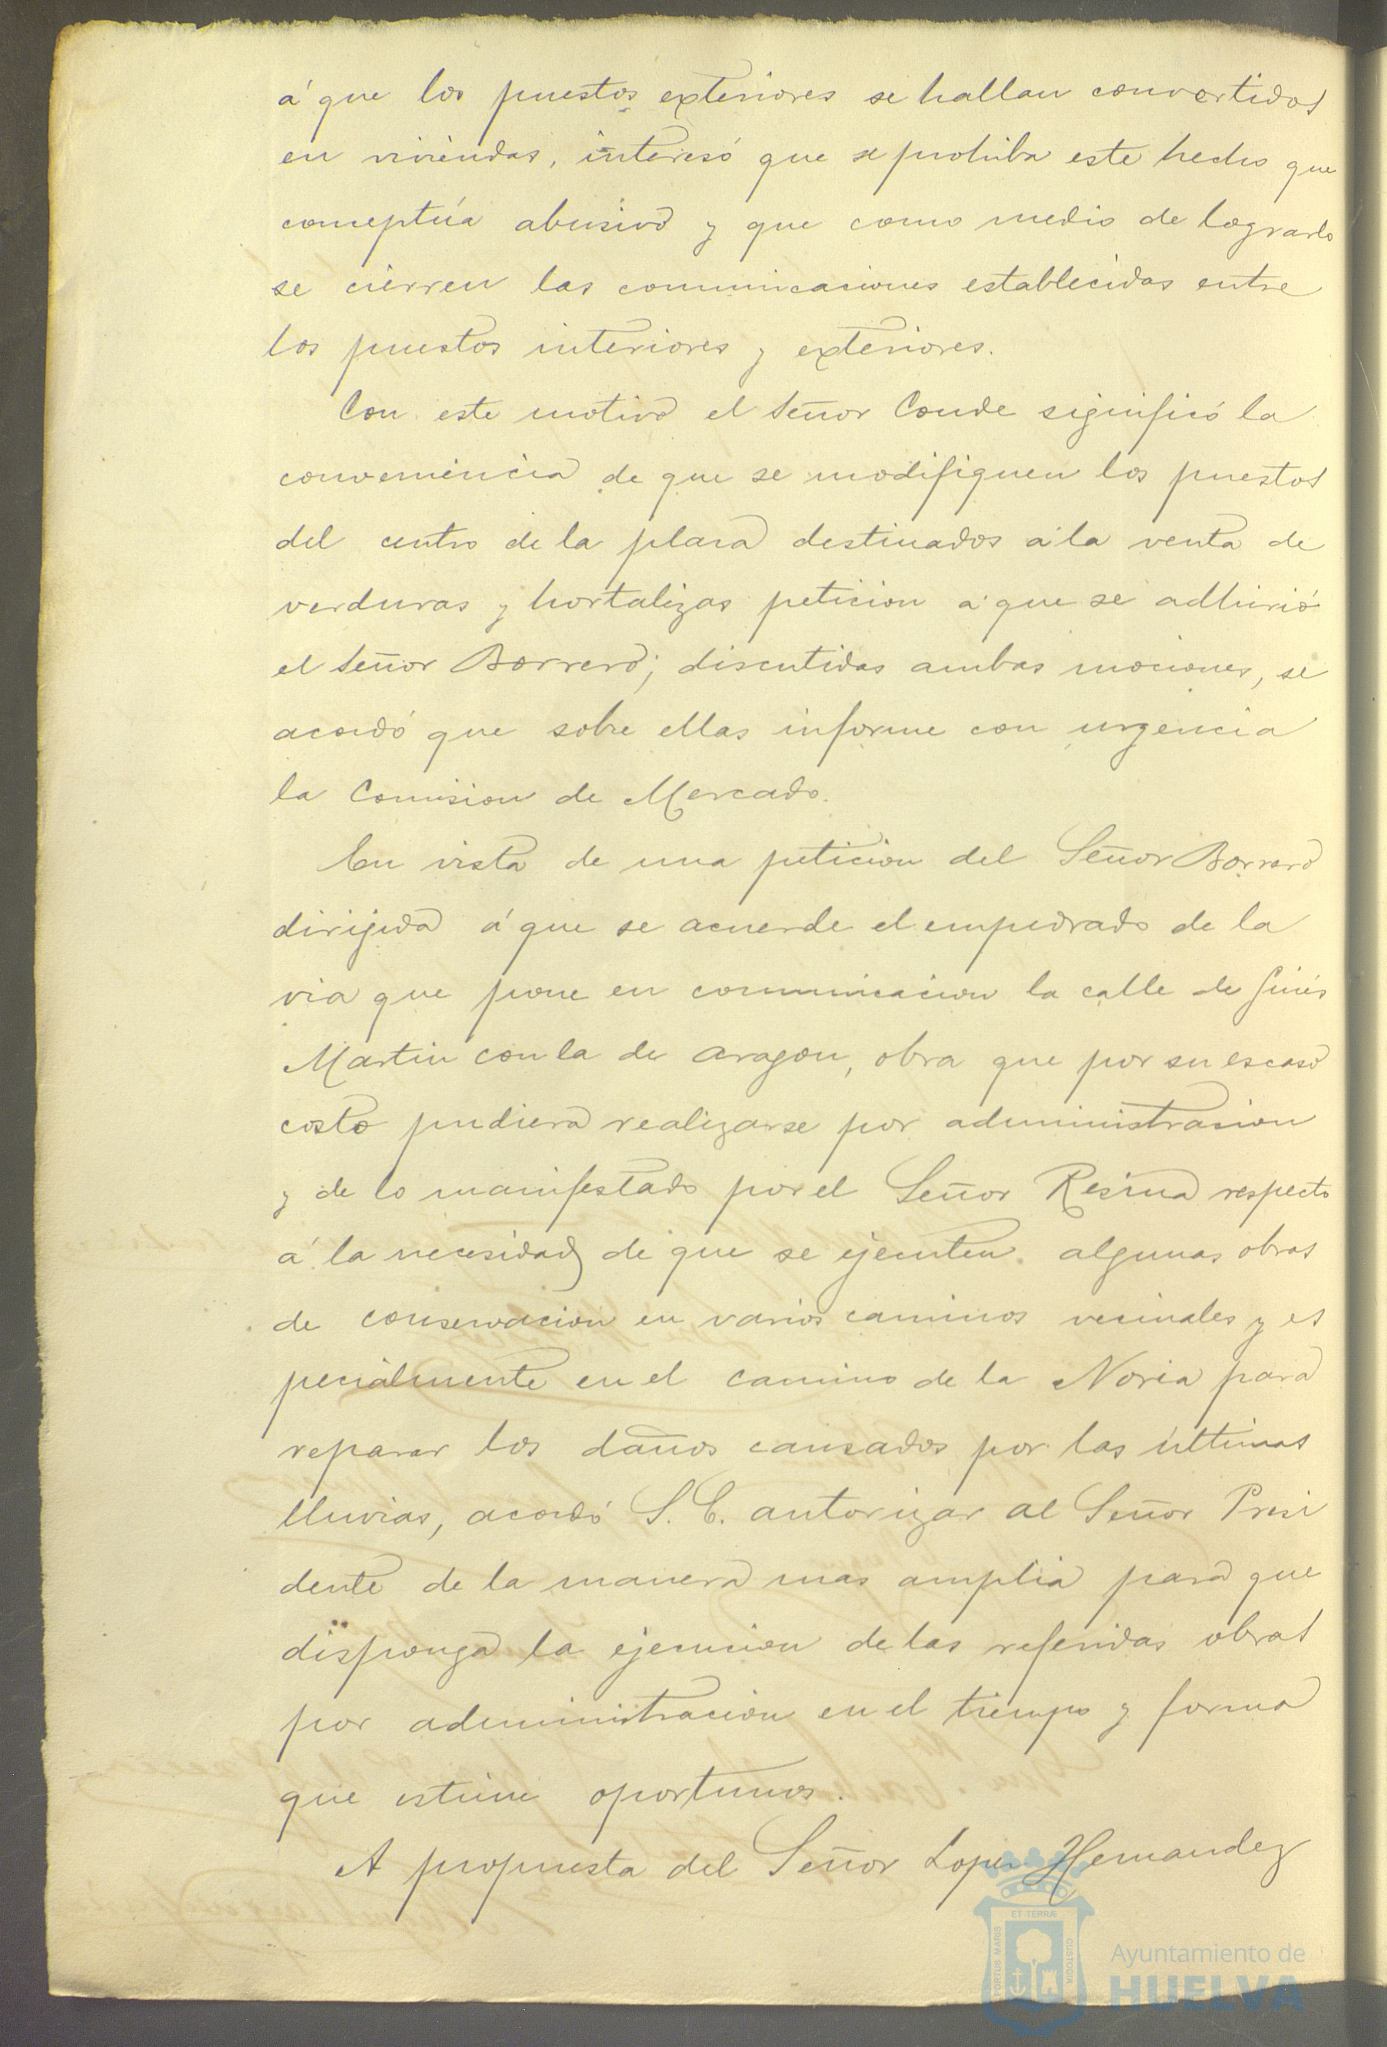 á que los puestos exteriores se hallan convertidos
en viviendas, interesó que se prohiba este hecho que
conceptúa abusivo y que como medio de lograrlo
se cierren las comunicaciones establecidas entre
los puestos interiores y exteriores.
Con este motivo el Señor Conde significó la
conveniencia de que se modifiquen los puestos
del centro de la plasa destinados á la venta de
verduras y hortalizas peticion á que se adhirió
el Señor Borrero; discutidas ambas mociones, se
acordó que sobre ellas informe con urgencia
la Comision de Mercado.
En vista de una peticion del Señor Borrero
dirijida á que se acuerde el empedrado de la
via que pone en comunicacion la calle de Ginés
Martin con la de Aragon, obra que por su escaso
costo pudiera realizarse por administracion
y de lo manifestado por el Señor Resina respecto
á la necesidad de que se ejecuten algunas obras
de conservacion en varios caminos vecinales y es
pecialmente en el camino de la Noria para
reparar los daños causados por las últimas
lluvias, acordó S. C. autorizar al Señor Presi
dente de la manera mas amplia para que
disponga la ejecucion de las referidas obras
por administracion en el tiempo y forma
que estime oportunos.
A propuesta del Señor Lopez Hernandez
ET TERRÆ
PORTUS MARIS
CUSTODIA
Ayuntamiento de
HUELVA